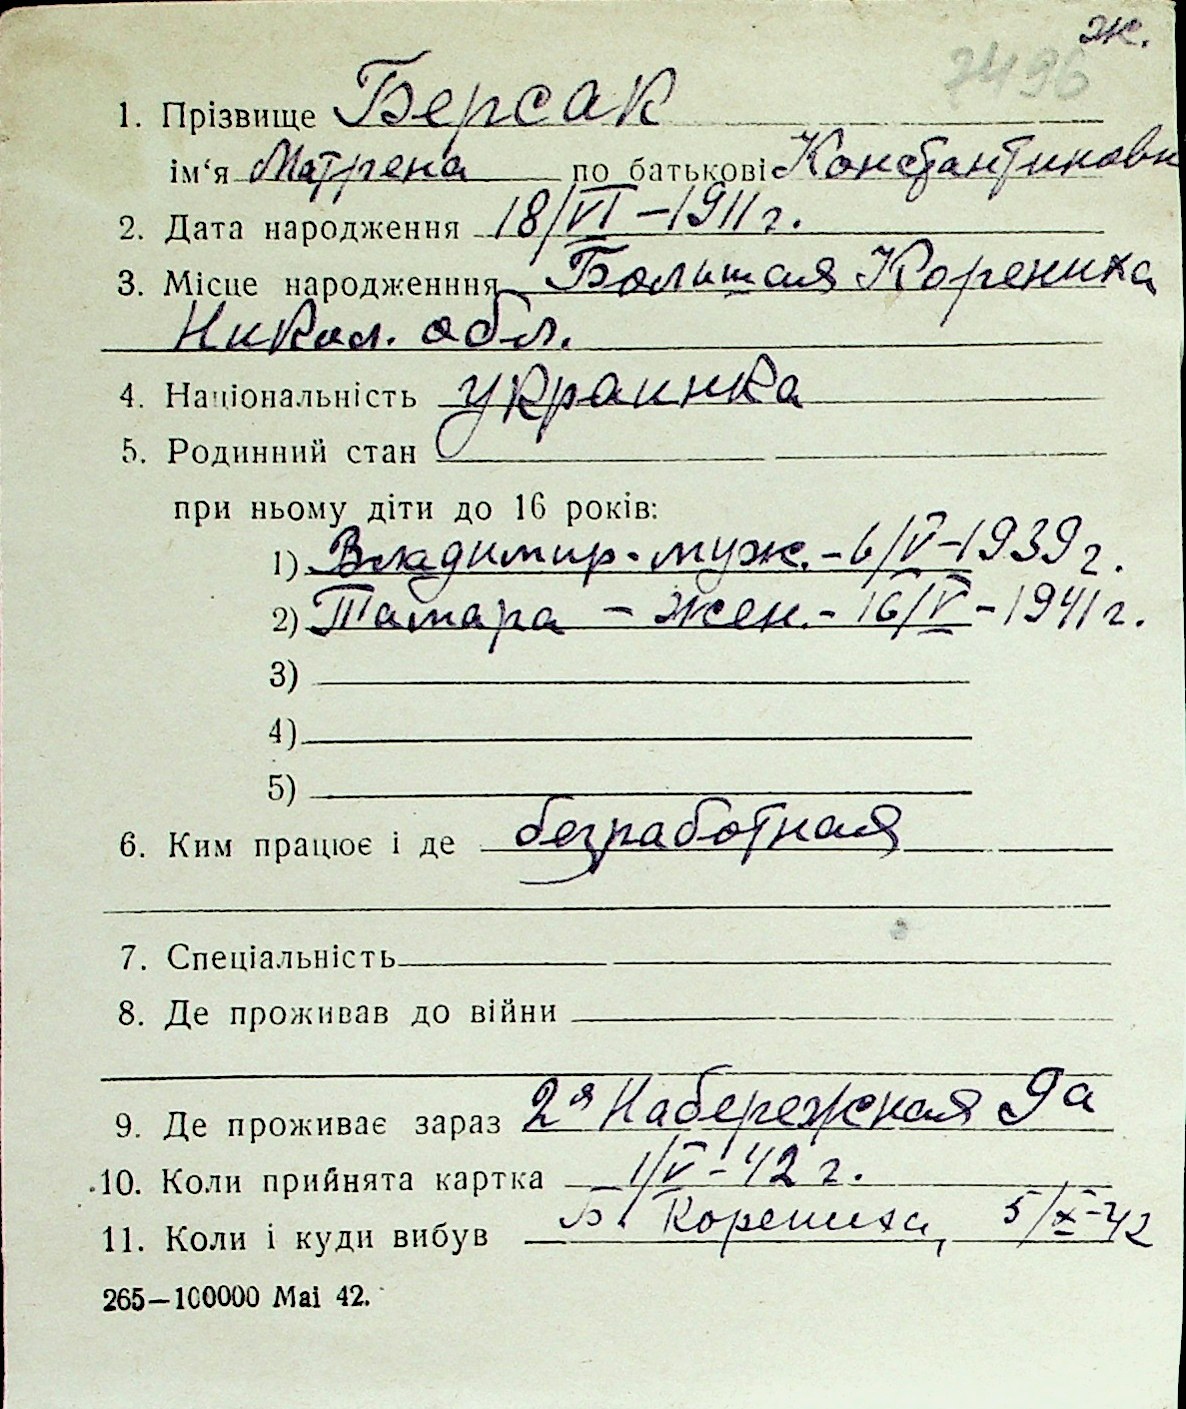 ж.
7496
1. Прізвище Берсак
ім‘я Матрена по батькові Константиновн
2. Дата народження 18/VI – 1911 г.
3. Місце народженння Большая Корениха
Никол. обл.
4. Національність украинка
5. Родинний стан
при ньому діти до 16 років:
1) Владимир - муж. – 6/V – 1939 г.
2) Тамара – жен. – 16/V – 1941 г.
3)
4)
5)
6. Ким працює і де безработная
7. Спеціальність
8. Де проживав до війни
9. Де проживає зараз 2я Набережная 9а
10. Коли прийнята картка 1/V – 42 г.
11. Коли і куди вибув Б. Корениха, 5/X – 42
265—100000 Mai 42.